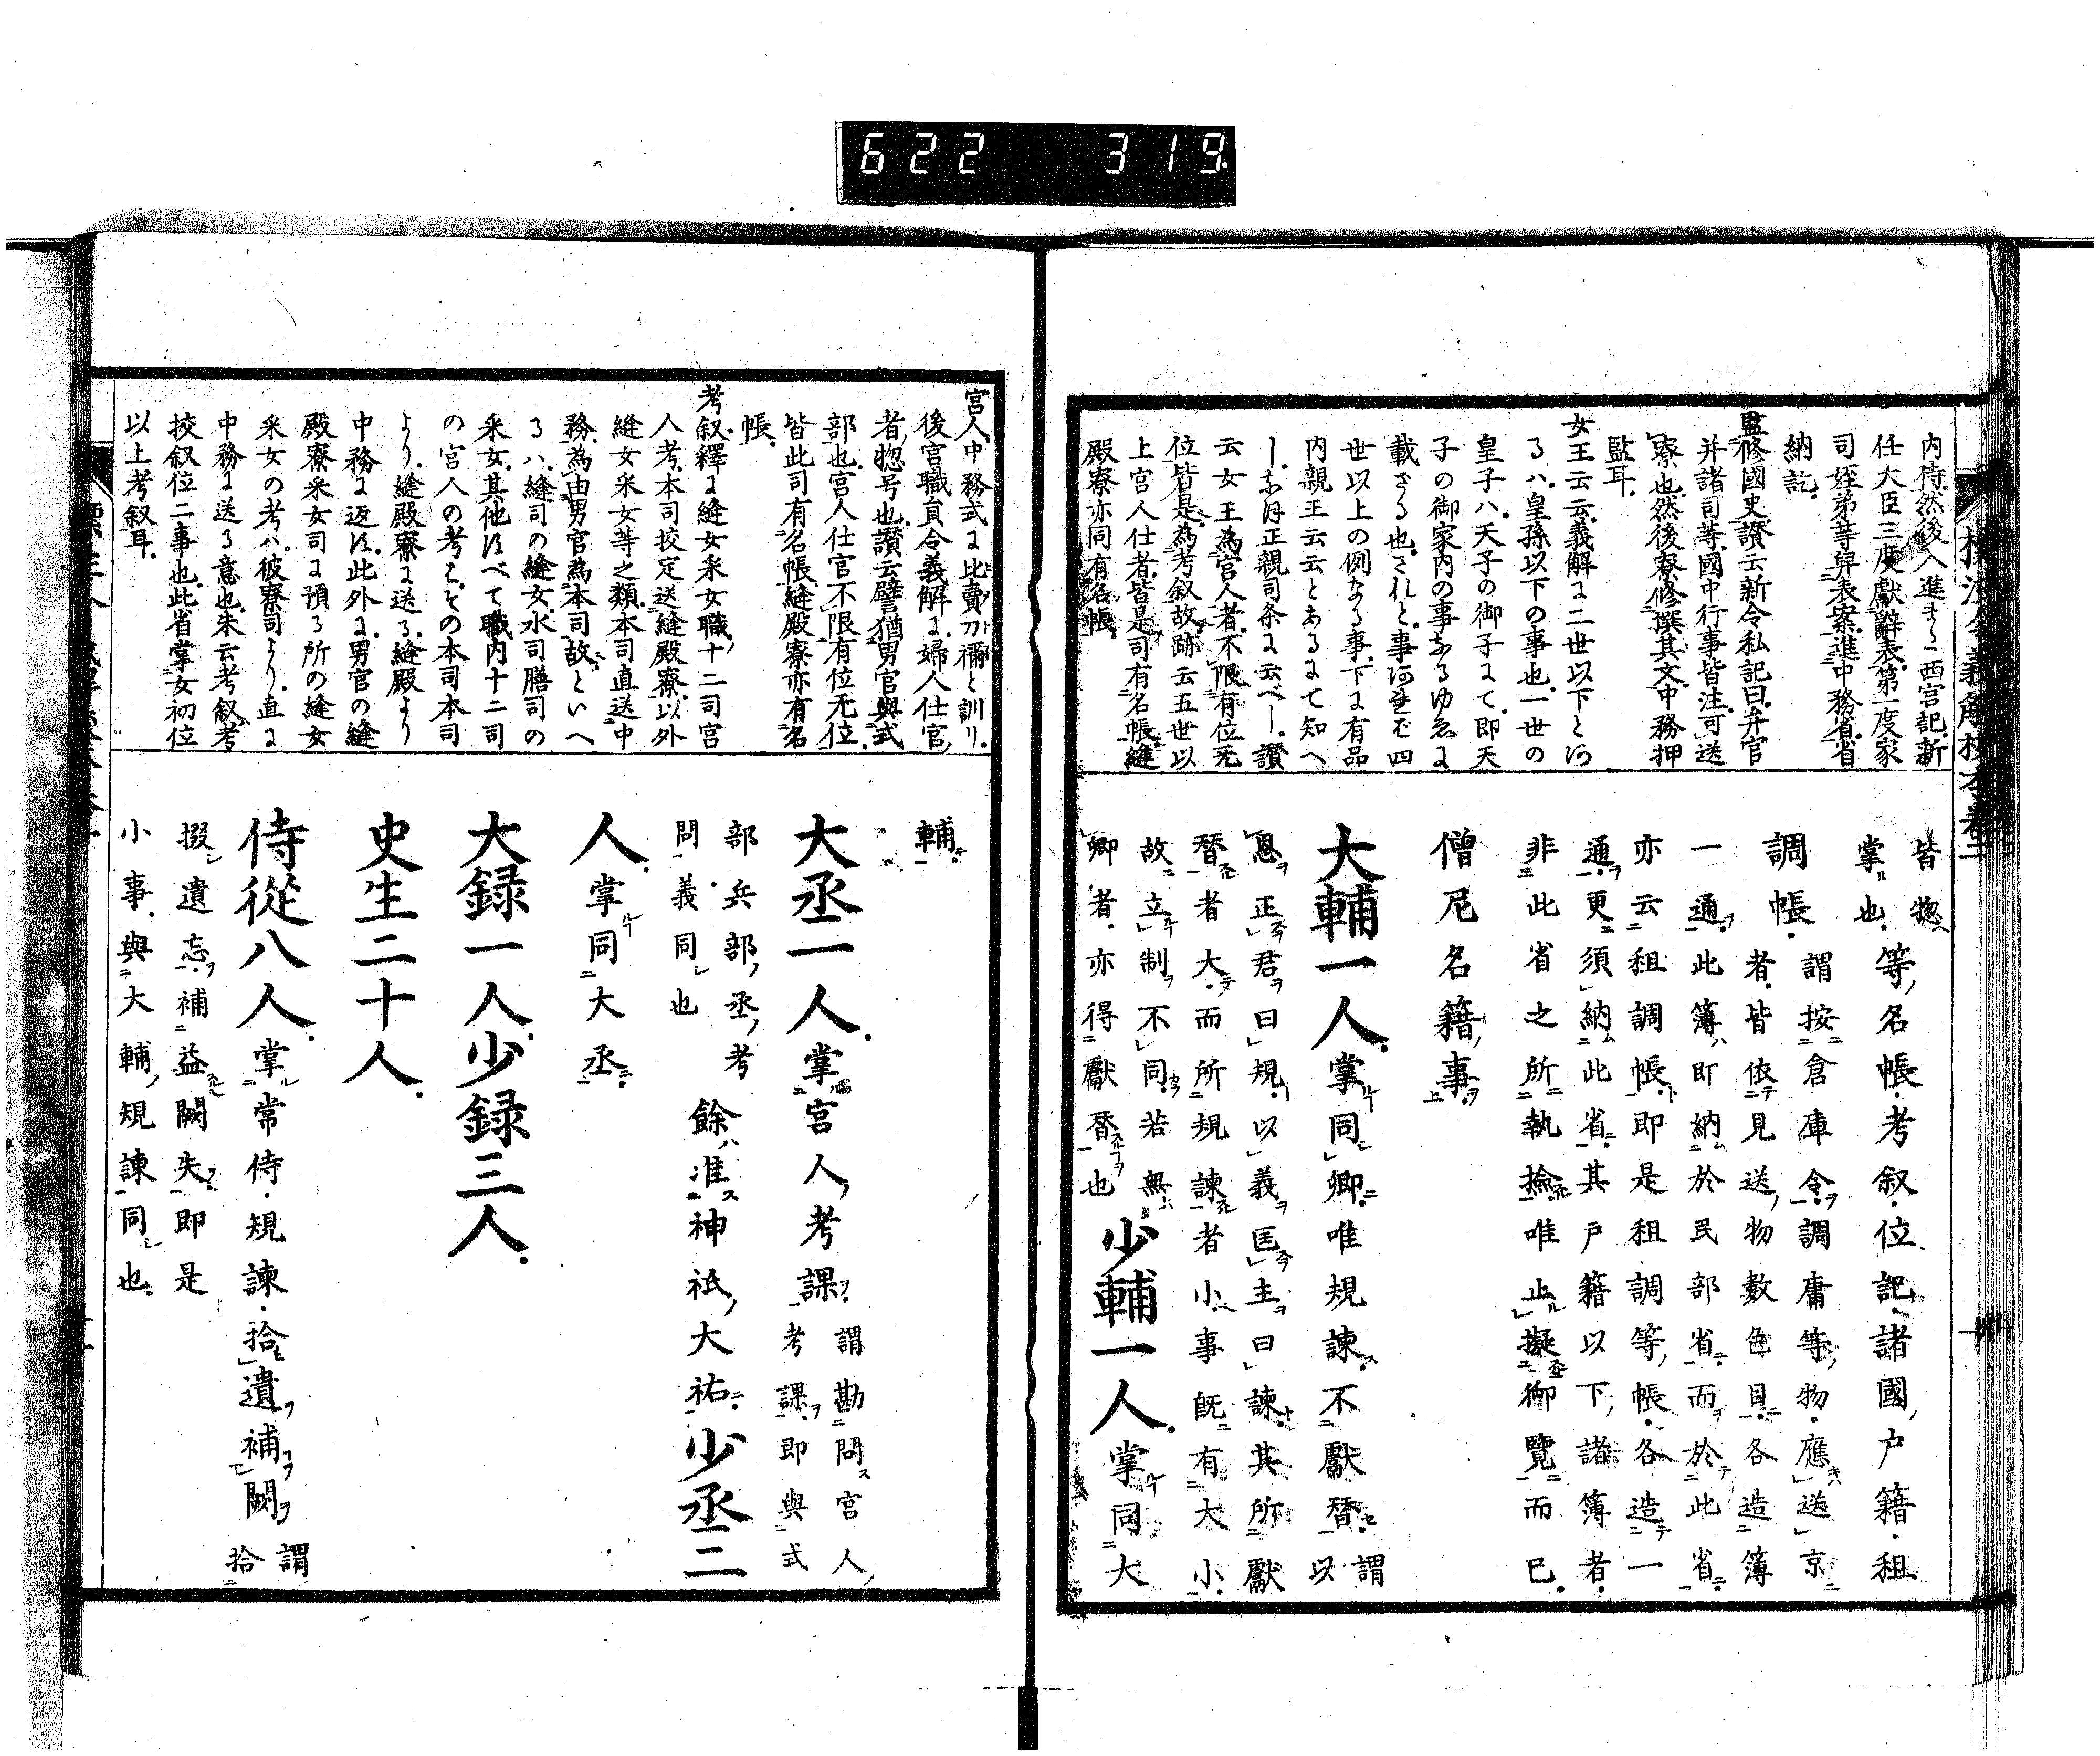 622 319
内侍、然後入進まゝ西宮記、新
任大臣三度獻辭表、第一度家
司姪弟等舁表案、進中務省、省
納訖。
監修國史、讃云新令私記曰、弁官
并諸司等、國中行事皆注、可送
寮也、然後寮修撰其文、中務押
監耳。
女王云云、義解に二世以下とあ
るハ、皇孫以下の事也、一世の
皇子ハ、天子の御子にて、即天
子の御家内の事なるゆゑに
載ざる也、されと、事あれど四
世以上の例なる事、下に有品
内親王云云とあるにて知へ
し、なほ正親司条に云べし、讃
云女王為宮人者、不限有位无
位皆是、為考叙故、跡云五世以
上宮人仕者、皆是司有名帳、縫
殿寮亦同有名帳。
皆惣
掌也。等名帳・考叙・位記、諸國戸籍・租
調帳。謂按倉庫令、調庸等物、應送京
者、皆依見送物數色目、各造簿
一通、此簿即納於民部省、而於此省
亦云租調帳、即是租調等帳、各造一
通、更須納此省、其戸籍以下諸簿者、
非此省之所執撿、唯止擬御覽而已。
僧尼名籍事
大輔一人。掌同卿、唯規諫不獻替。謂以
恩正君曰規、以義匡主曰諫、其所獻
替者大、而所規諫者小、事既有大小、
故立制不同、若無
卿者、亦得獻替也 少輔一人。掌同大
宮人、中務式に比賣刀禰と訓り、
後宮職員令義解に、婦人仕官
者、惣号也、讃云譬猶男官與式
部也、宮人仕官不限有位无位、
皆此司有名帳、縫殿寮亦有名
帳。
考叙、釋に縫女采女職、十二司宮
人考、本司挍定送縫殿寮、以外
縫女采女等之類、本司直送中
務、為由男官為本司故、といへ
るハ、縫司の縫女、水司膳司の
采女、其他すべて職内十二司
の宮人の考も、その本司本司
より、縫殿寮に送る、縫殿より
中務に返す、此外に、男官の縫
殿寮采女司に預る所の縫女
采女の考ハ、彼寮司より、直に
中務に送る意也、朱云考叙、考
挍叙位二事也、此省掌女初位
以上考叙耳。
輔
大丞一人。掌宮人考課、謂勘問宮人、
考課、即與式
部兵部丞考
問義同也 餘准神祇大祐。少丞二
人。掌同大丞
大録一人。少録三人。
史生二十人。
侍從八人。掌常侍・規諫・拾遺補闕。謂拾
掇遺忘、補益闕失、即是
小事、與大輔規諫同也。